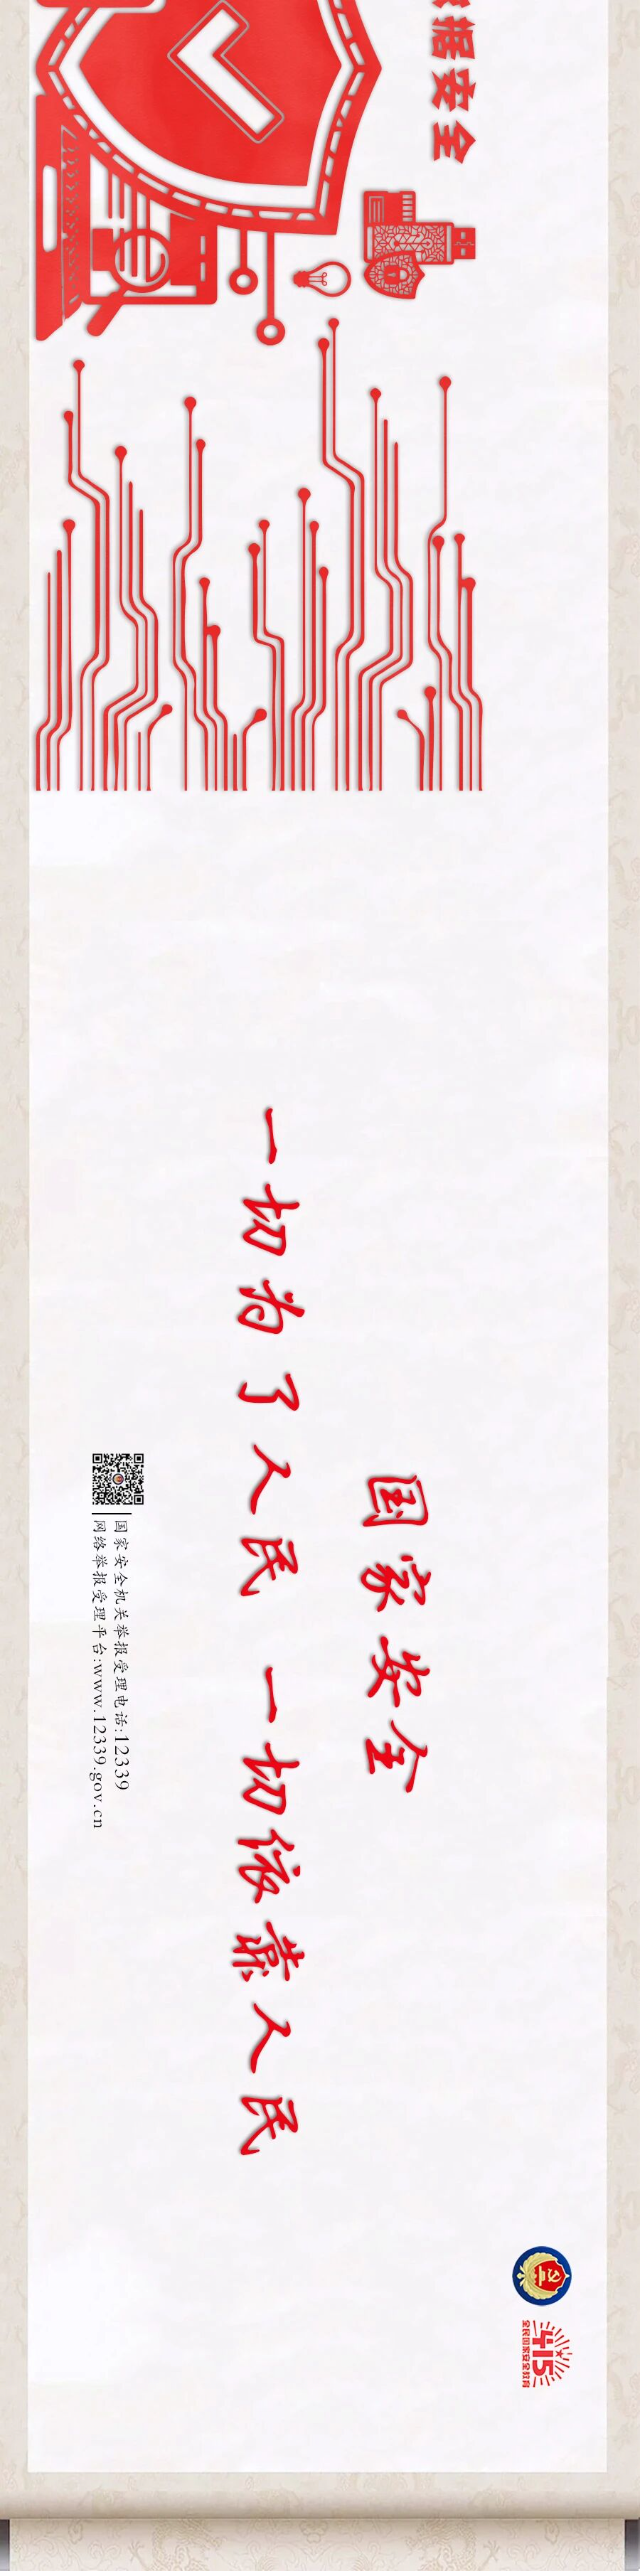 据安全
国家安全
一切为了人民 一切依靠人民
国家安全机关举报受理电话:12339
网络举报受理平台:www.12339.gov.cn
415
全民国家安全教育